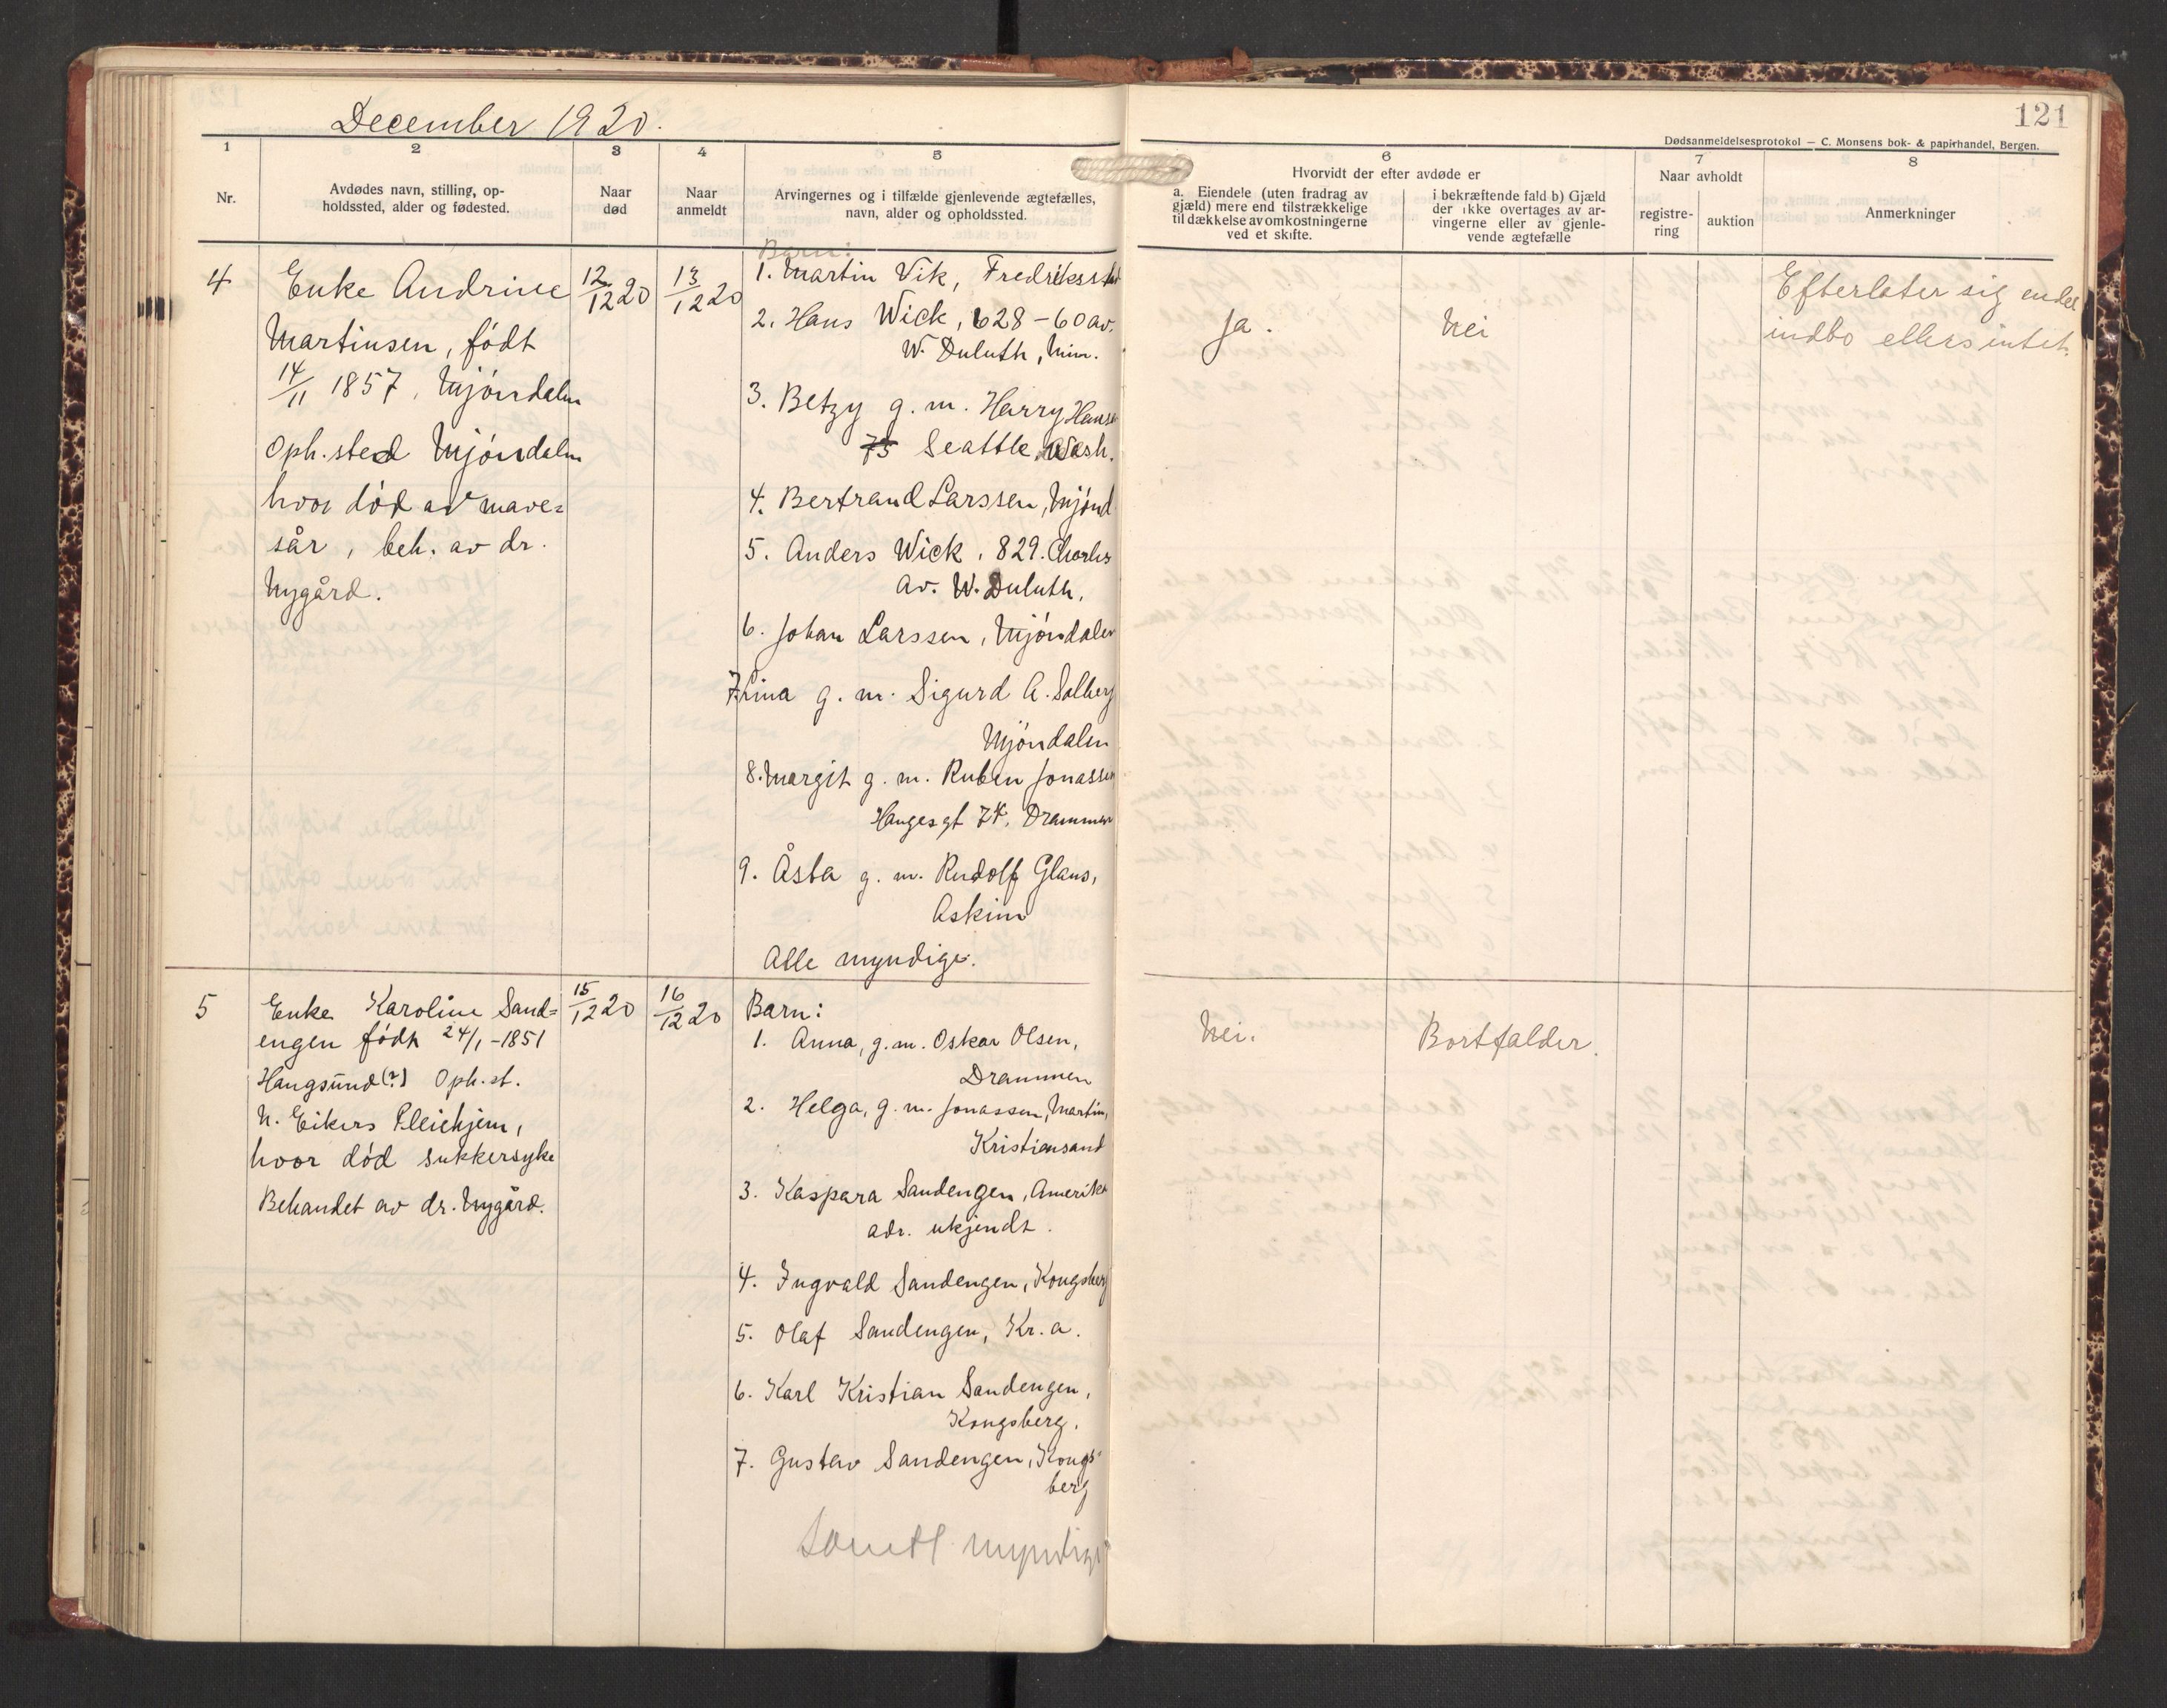 December 1920.
121
Dødsanmeldelsesprotokol — C. Monsens bok- & papirhandel, Bergen.
1
2
3
4
5
6
7
8
Nr.
Avdødes navn, stilling, op-
holdssted, alder og fødested.
Naar
død
Naar
anmeldt
Arvingernes og i tilfælde gjenlevende ægtefælles,
navn, alder og opholdssted.
Hvorvidt der efter avdøde er
a. Eiendele (uten fradrag av
gjæld) mere end tilstrækkelige
til dækkelse av omkostningerne
ved et skifte.
i bekræftende fald b) Gjæld
der ikke overtages av ar-
vingerne eller av gjenle-
vende ægtefælle
Naar avholdt
registre-
ring
auktion
Anmerkninger
4
Enke Andrine
Martinsen, født
14/11 1857, Mjøndalen
Oph.sted Mjøndalen
hvor død av mave=
sår, beh. av dr.
Nygård.
12/12 20
13/12 20
Barn:
1. Martin Vik, Fredriksstad
2. Hans Wick, 628-60 av.
W. Duluth, Min.
3. Betzy g. m. Harry Hansen
75 Seattle, Wash.
4. Bertrand Larssen, Mjønd
5. Anders Wick, 829. Charles
Av. W. Duluth.
6. Johan Larssen, Mjøndalen
7. Lina g. m. Sigurd A. Solberg
Mjøndalen
8. Margit g. m. Ruben Jonassen
Haugesgt 74, Drammen
9. Åsta g. m. Rudolf Glans,
Askim
Alle myndige.
Ja.
Nei
Efterlater sig endel
indbo ellers intet.
5
Enke Karoline Sand=
engen født 24/1-1851
Haugsund(?) Oph.st.
N. Eikers Pleiehjem,
hvor død sukkersyke
Behandlet av dr. Nygård.
15/12 20
16/12 20
Barn:
1. Anna, g.m. Oskar Olsen,
Drammen
2. Helga, g. m. Jonassen, Martin,
Kristiansand
3. Kaspara Sandengen, Amerika
adr. ukjendt.
4. Ingvald Sandengen, Kongsberg
5. Olaf Sandengen, Kr.a.
6. Karl Kristian Sandengen,
Kongsberg.
7. Gustav Sandengen, Kongs-
berg
Samtl myndige
Nei.
Bortfalder.